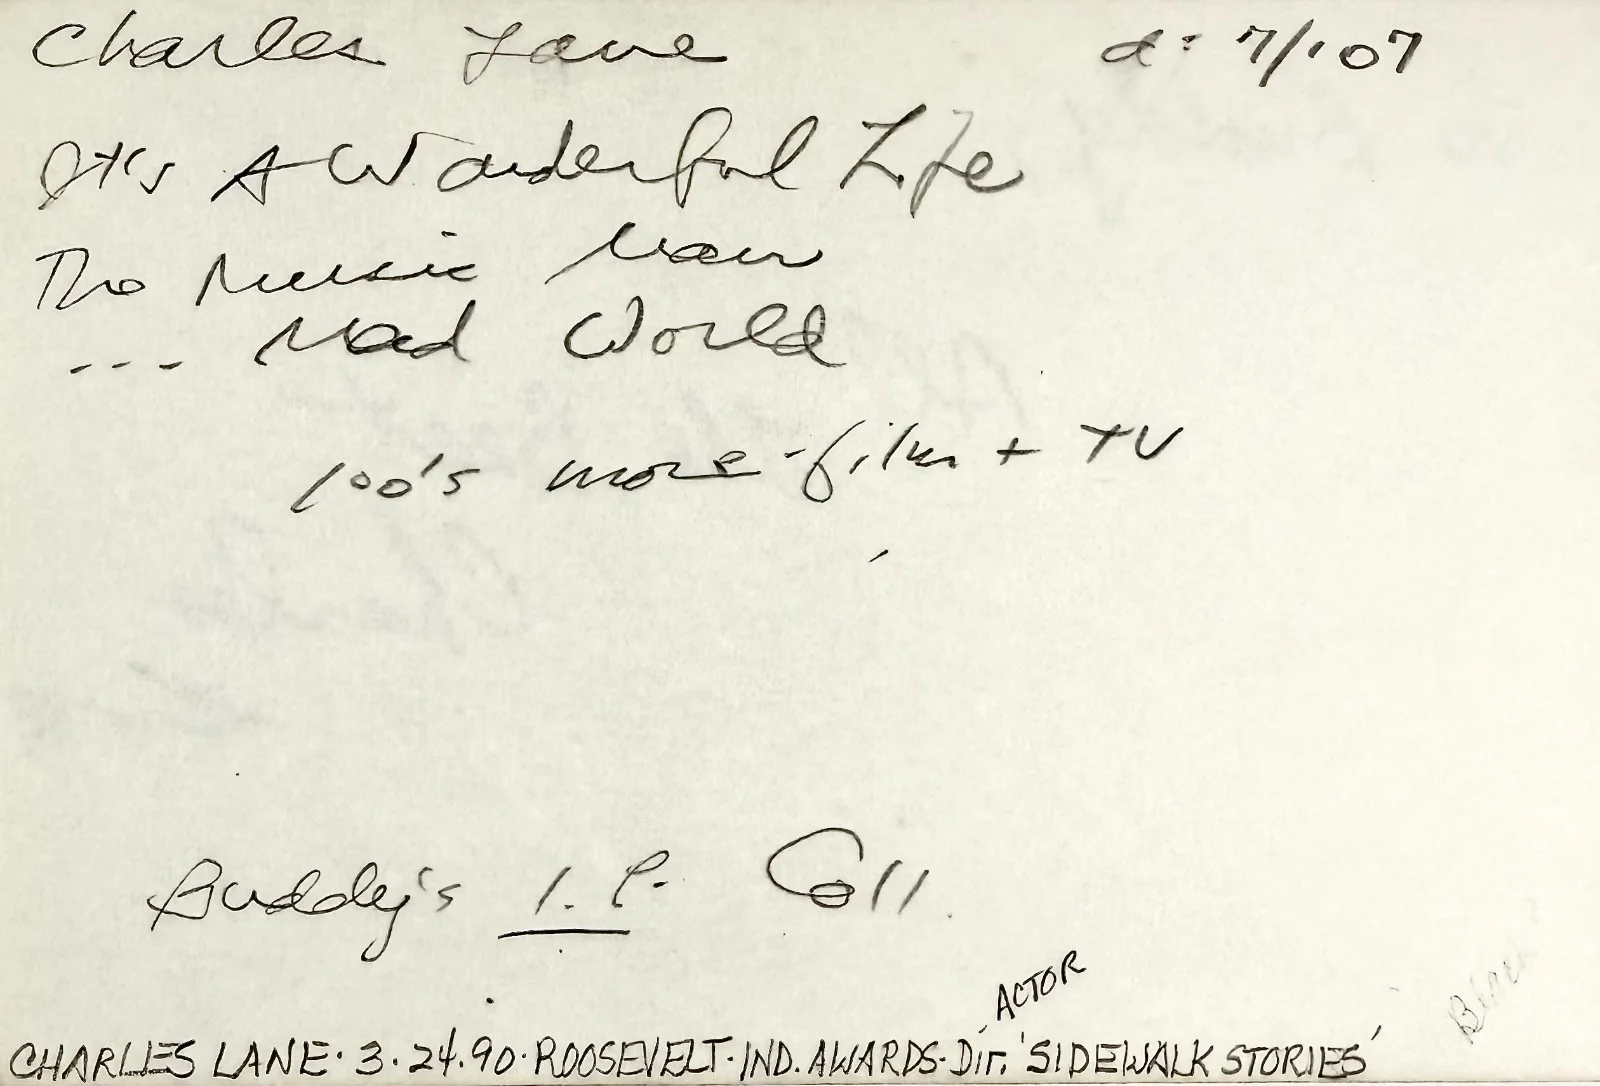 Charles Lane d: 7/'07
It's A Wonderful Life
The Music Man
--- Mad World
100's more - film + TV
Buddy's I.P. Coll.
ACTOR
CHARLES LANE · 3·24·90 · ROOSEVELT · IND. AWARDS - Dir. 'SIDEWALK STORIES'